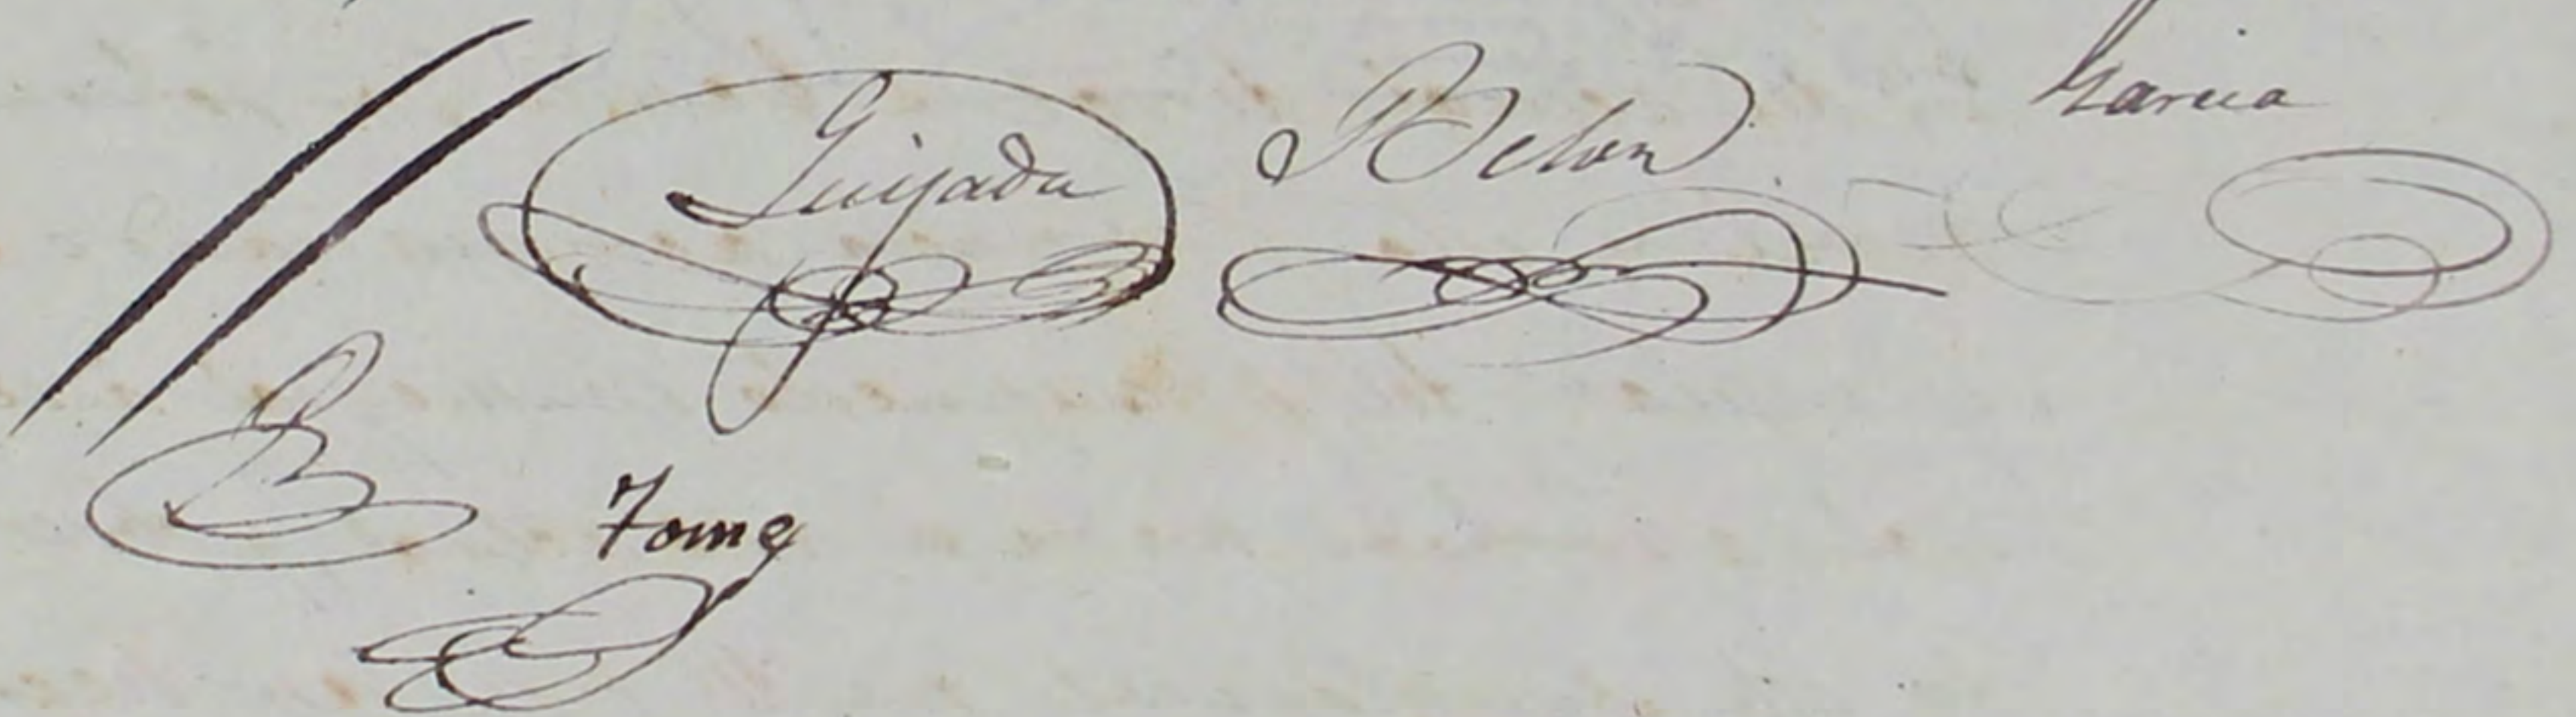 Quijada Belon Garcia
Tome